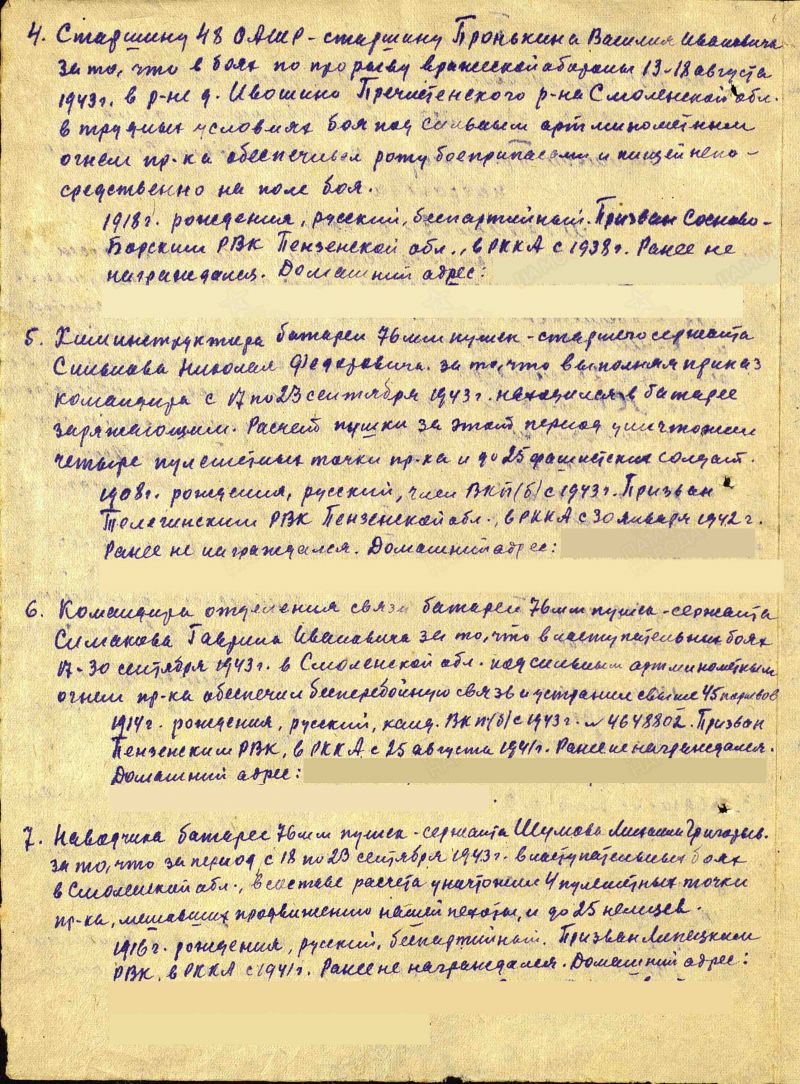 4. Старшину 48 ОАШР - старшину Пронькина Василия Ивановича
за то, что в боях по прорыву вражеской обороны 13-18 августа
1943г. в р-не д. Ивошино Пречистенского р-на Смоленской обл.
в трудных условиях боя под сильным артминометным
огнем пр-ка обеспечивал роту боеприпасами и пищей непо-
средственно на поле боя.
1918г. рождения, русский, беспартийный. Призван Сосново-
Борским РВК Пензенской обл., в РККА с 1938г. Ранее не
награждался. Домашний адрес:
5. Химинструктора батареи 76мм пушек - старшего сержанта
Николая Федоровича за то, что выполняя приказ
командира с 17 по 23 сентября 1943г. находился в батарее
заряжающим. Расчет пушки за этот период уничтожил
четыре пулеметных точки пр-ка и до 25 фашистских солдат.
1908г. рождения, русский, член ВКП(б) с 1943г. Призван
Телегинским РВК Пензенской обл., в РККА с 30 января 1942г.
Ранее не награждался. Домашний адрес:
6. Командира отделения связи батареи 76мм пушек - сержанта
Симакова Гаврила Ивановича за то, что в наступательных боях
17-30 сентября 1943г. в Смоленской обл. под сильным артминометным
огнем пр-ка обеспечил бесперебойную связь и устранил свыше 45 порывов
1914г. рождения, русский, канд. ВКП(б) с 1943г. № 4648802. Призван
Пензенским РВК, в РККА с 25 августа 1941г. Ранее не награждался.
Домашний адрес:
7. Наводчика батареи 76мм пушек - сержанта Шумова Михаила Григорьев.
за то, что за период с 18 по 23 сентября 1943г. в наступательных боях
в Смоленской обл., в составе расчета уничтожил 4 пулеметных точки
пр-ка, мешавших продвижению нашей пехоты, и до 25 немцев.
1916г. рождения, русский, беспартийный. Призван Липецким
РВК, в РККА с 1941г. Ранее не награждался. Домашний адрес: